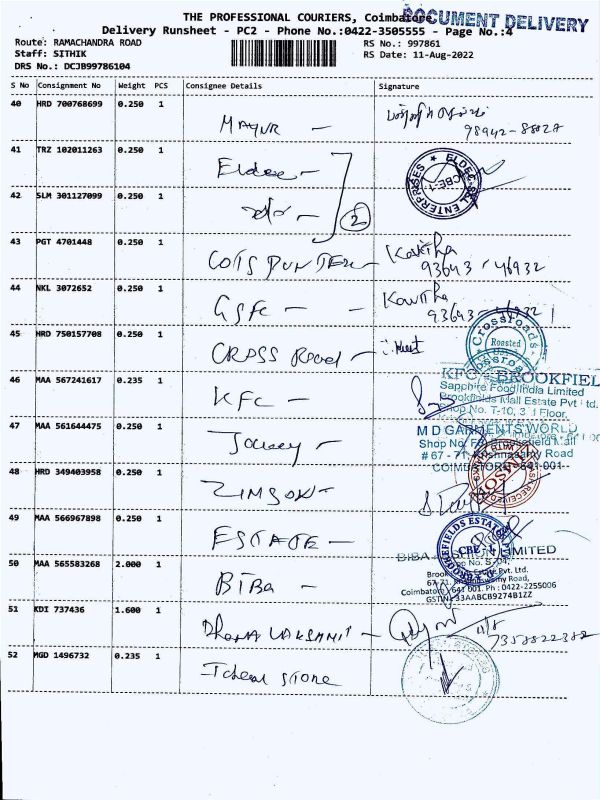 THE PROFESSIONAL COURIERS, Coimbatore
DOCUMENT DELIVERY
Delivery Runsheet - PC2 - Phone No.:0422-3505555 - Page No.:4
Route: RAMACHANDRA ROAD
Staff: SITHIK
DRS No.: DCJB99786104
RS No.: 997861
RS Date: 11-Aug-2022
S No Consignment No Weight PCS Consignee Details Signature
40 HRD 700768699 0.250 1
MAYUR —
98942-88027
41 TRZ 102011263 0.250 1
Eldee —
ELDEC SAL ENTERPRISES
CBE-1
42 SLM 301127099 0.250 1
2
43 PGT 4701448 0.250 1
Kavitha
93643 - 46932
44 NKL 3072652 0.250 1
GSFC — —
Kavitha
93643 - 46932
45 HRD 750157708 0.250 1
CROSS Road —
Crossroads
Roasted
46 MAA 567241617 0.235 1
KFC —
KFC - BROOKFIEL
Sapphire Food India Limited
Brookfields Mall Estate Pvt Ltd.
Shop No. T-10, 3 Floor,
47 MAA 561644475 0.250 1
M D GARMENTS WORLD
Shop No. Brookefield Mall
# 67 - 71, Krishnasamy Road
COIMBATORE - 641 001
48 HRD 349403958 0.250 1
ZIMSON —
49 MAA 566967898 0.250 1
ESTATE —
BROOKEFIELDS ESTATE
CBE-1
50 MAA 565583268 2.000 1
BIBA —
BIBA LIMITED
Estate Pvt. Ltd.
67-71, Krishnaswamy Road,
Coimbatore 641 001. Ph : 0422-2255006
GSTIN: 33AABCB9274B1ZZ
51 KDI 737436 1.600 1
Dhana LAKSHMI —
11/8
7358822382
52 MGD 1496732 0.235 1
STONE